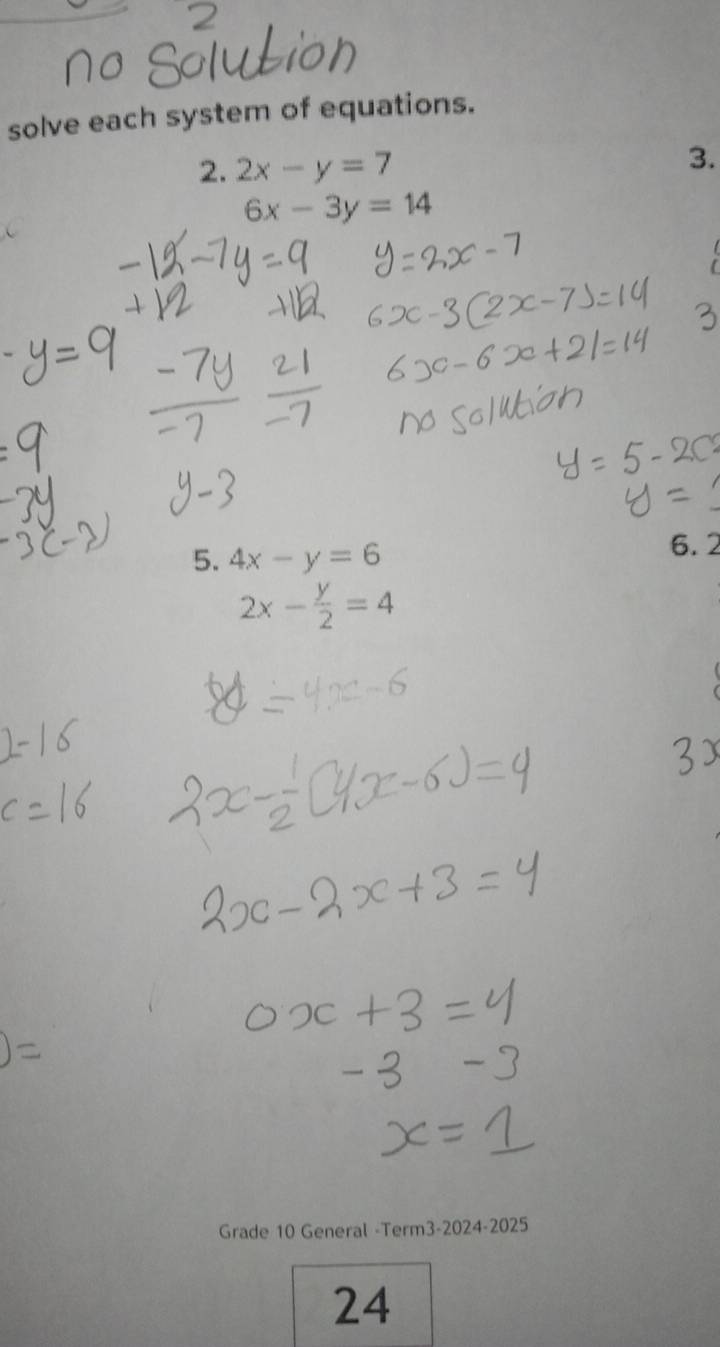 2
no solution
solve each system of equations.
2. 2x - y = 7
3.
6x - 3y = 14
-12-7y=9
y=2x-7
+12 +12
6x-3(2x-7)=14
3
-y=9
-7y 21
6x-6x+21=14
-7 -7
no solution
=9
y=5-2x
-3y
y-3
y=
-3(-3)
5. 4x - y = 6
6. 2
2x - y/2 = 4
y=4x-6
=16
3x
2x-1/2(4x-6)=4
=16
2x-2x+3=4
0x+3=4
)=
-3 -3
x=1
Grade 10 General -Term3-2024-2025
24